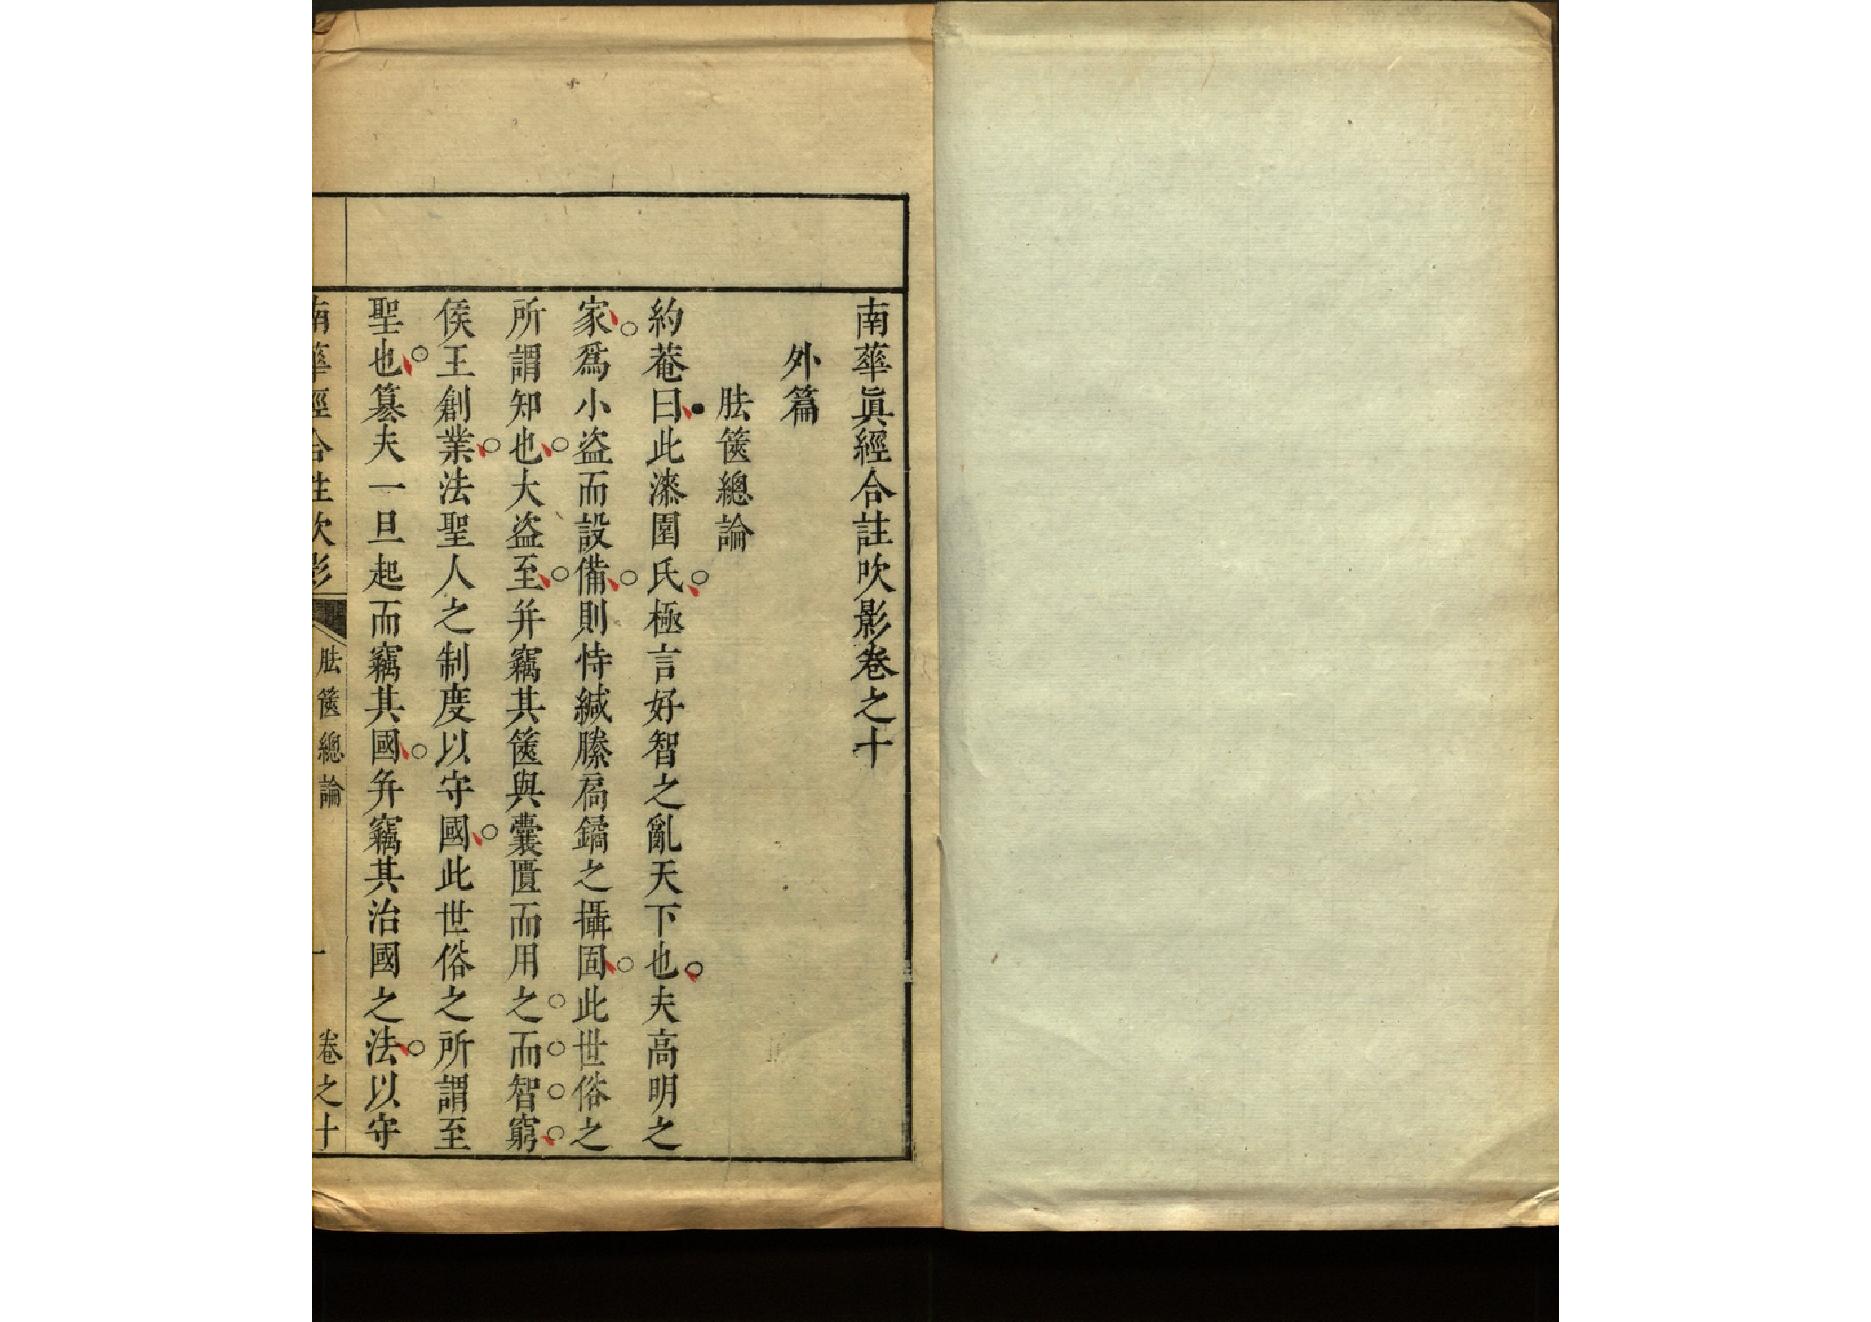 南華眞經合註吹影卷之十
外篇
胠篋總論
約菴曰此漆園氏極言好智之亂天下也夫高明之
家爲小盜而設備則恃緘縢扃鐍之攝固此世俗之
所謂知也大盜至并竊其篋與囊匱而用之而智窮
侯王創業法聖人之制度以守國此世俗之所謂至
聖也簒夫一旦起而竊其國并竊其治國之法以守
南華經合註吹影 胠篋總論 一 卷之十